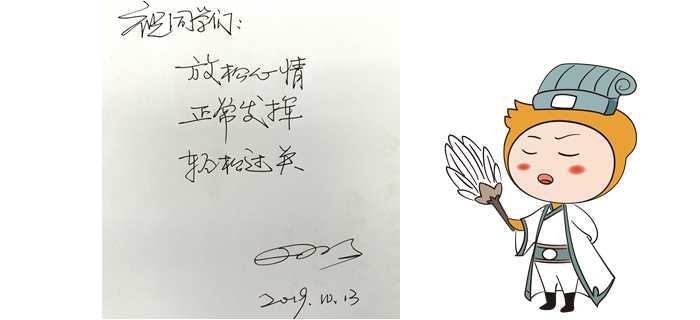 祝同学们:
放松心情
正常发挥
轻松过关
2019.10.13